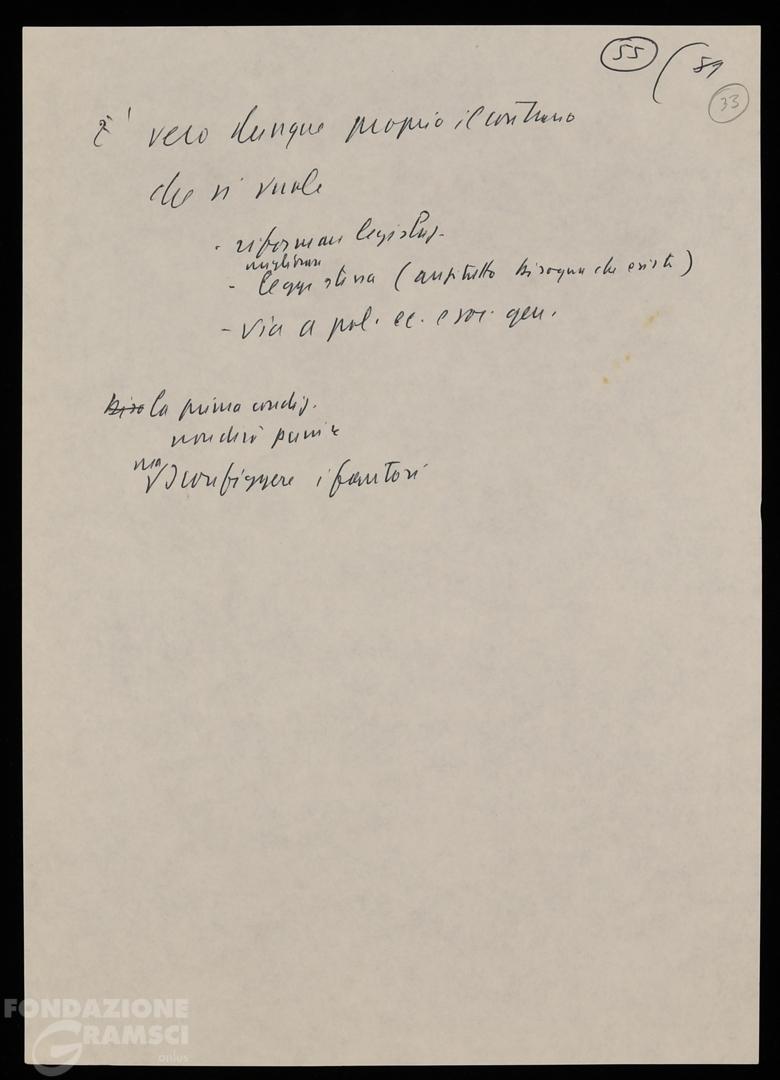 55 / 81
33
E' vero dunque proprio il contrario
che si vuole
- riformare legislaz.
migliorare
- legge stessa (anzitutto bisogna che esista)
- via a pol. ec. e soc. gen.
la prima condiz.
non dirò
ma
sconfiggere i fautori
FONDAZIONE
GRAMSCI
onlus